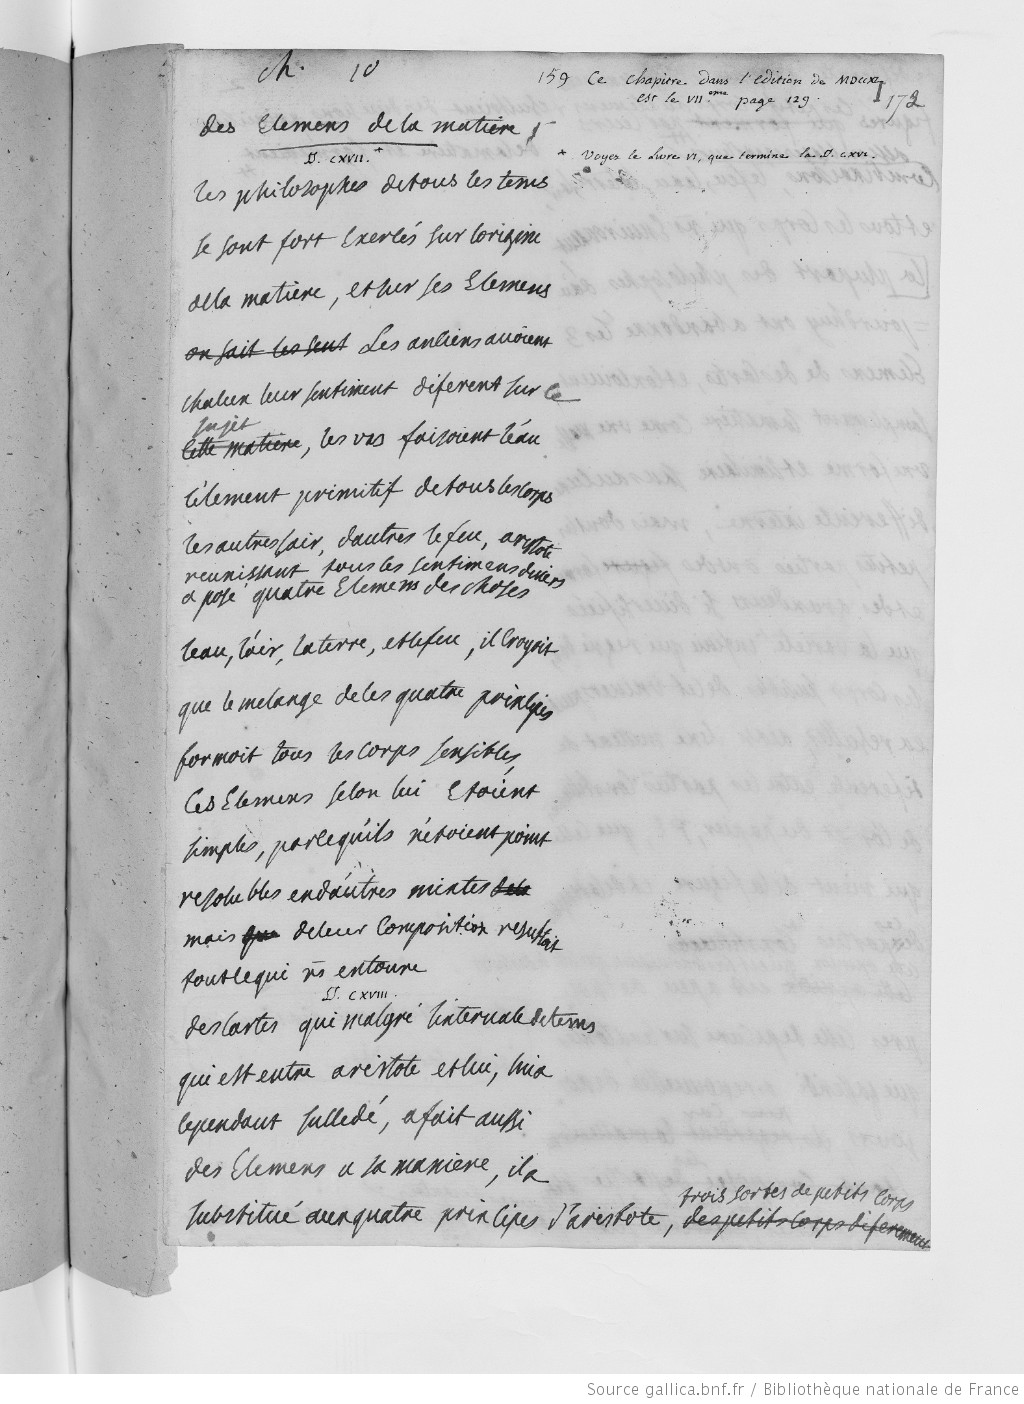 ch. 10
159 Ce chapitre dans l'edition de MDCCXLI
est le VII.eme page 129.
172
des Elemens de la matiere
§. CXVII. +
+ Voyez le Livre VI, que termine le §. CXVI.
les philosophes de tous les tems
se sont fort exercés sur lorigine
de la matiere, et sur ses Elemens
on sait les sent Les anciens avoient
chacun leur sentiment diferent sur ce
sujet
cette matiere, les uns faisoient l'eau
l'element primitif de tous les corps
les autres lair, dautres le feu, aristote
reunissant tous les sentimens divers
a posé quatre Elemens des choses
leau, l'air, la terre, et le feu, il croyoit
que le melange de ces quatre principes
formoit tous les corps sensibles,
Ces Elemens selon lui etoient
simples, parcequ'ils n'etoient point
resolubles en d'autres mixtes de la
mais que de leur composition resultoit
tout ce qui ns entoure
§. CXVIII.
descartes qui malgré l'intervale de tems
qui est entre aristote et lui, lui a
cependant succedé, a fait aussi
des Elemens a sa maniere, il a
trois sortes de petits corps
substitué aux quatre principes d'aristote, des petits corps diferement